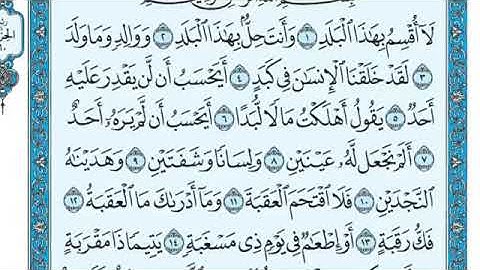 لَآ أُقْسِمُ بِهَٰذَا ٱلْبَلَدِ ١ وَأَنتَ حِلٌّۢ بِهَٰذَا ٱلْبَلَدِ ٢ وَوَالِدٍ وَمَا وَلَدَ
٣ لَقَدْ خَلَقْنَا ٱلْإِنسَٰنَ فِي كَبَدٍ ٤ أَيَحْسَبُ أَن لَّن يَقْدِرَ عَلَيْهِ
أَحَدٌ ٥ يَقُولُ أَهْلَكْتُ مَالًا لُّبَدًا ٦ أَيَحْسَبُ أَن لَّمْ يَرَهُۥٓ أَحَدٌ
٧ أَلَمْ نَجْعَل لَّهُۥ عَيْنَيْنِ ٨ وَلِسَانًا وَشَفَتَيْنِ ٩ وَهَدَيْنَٰهُ
ٱلنَّجْدَيْنِ ١٠ فَلَا ٱقْتَحَمَ ٱلْعَقَبَةَ ١١ وَمَآ أَدْرَىٰكَ مَا ٱلْعَقَبَةُ ١٢
فَكُّ رَقَبَةٍ ١٣ أَوْ إِطْعَٰمٌ فِي يَوْمٍ ذِي مَسْغَبَةٍ ١٤ يَتِيمًا ذَا مَقْرَبَةٍ